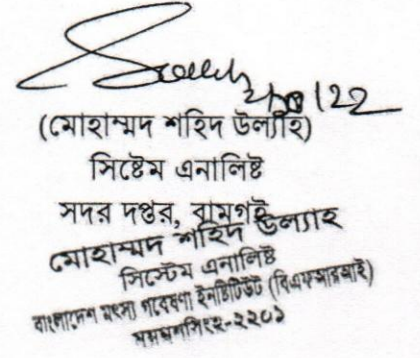 /22
(মোহাম্মদ শহিদ উল্যাহ)
সিষ্টেম এনালিষ্ট
সদর দপ্তর, বামগই
মোহাম্মদ শহিদ উল্যাহ
সিস্টেম এনালিষ্ট
বাংলাদেশ মৎস্য গবেষণা ইনষ্টিটিউট (বিএফআরআই)
ময়মনসিংহ-২২০১